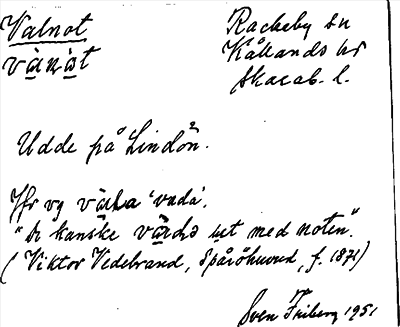 Valnot
Rackeby sn
vànàt
Kållands hd
Skarab. l.
Udde på Lindön.
Jfr vb vada 'vada'.
"De kanske ut med noten".
(Viktor Vedebrand, Spåröhuvud, f. 1871)
Sven Friberg 1951